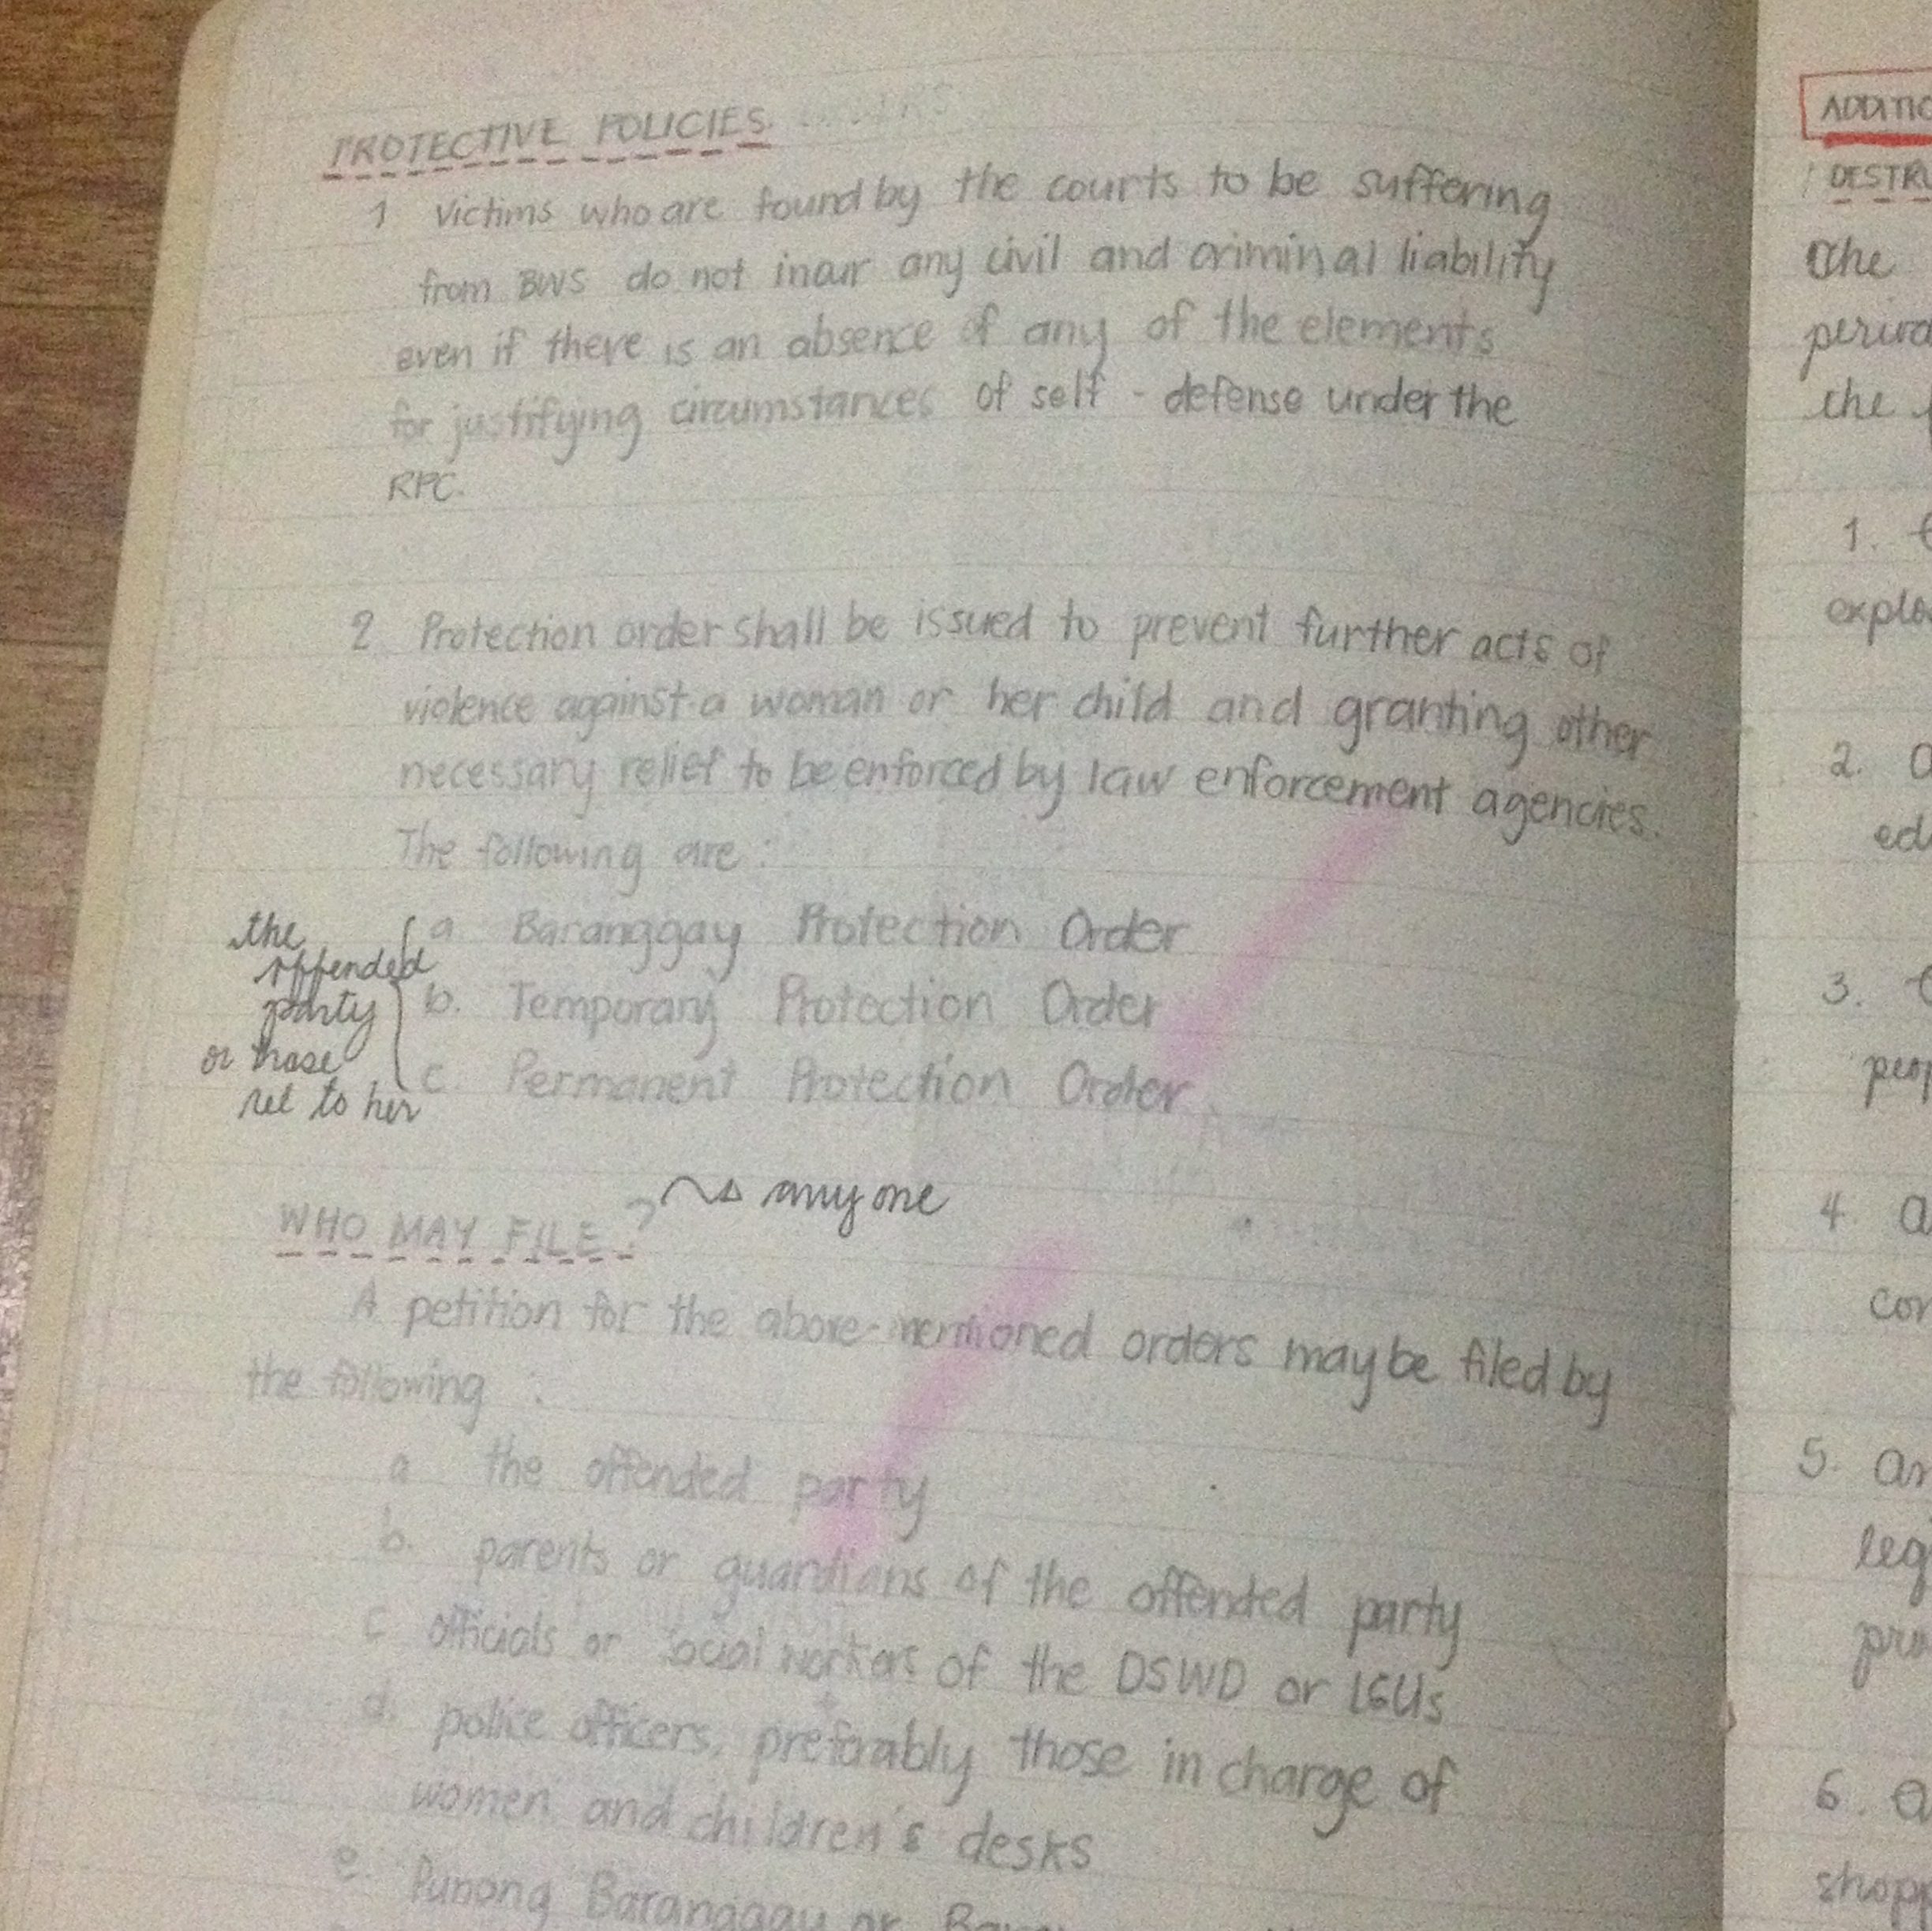 PROTECTIVE POLICIES
1 Victims who are found by the courts to be suffering
from BWS do not incur any civil and criminal liability
even if there is an absence of any of the elements
for justifying circumstances of self - defense under the
RPC.
2 Protection order shall be issued to prevent further acts of
violence against a woman or her child and granting other
necessary relief to be enforced by law enforcement agencies.
The following are :
a Baranggay Protection Order
b. Temporary Protection Order
c. Permanent Protection Order
the
offended
party
or those
rel to her
WHO MAY FILE? anyone
A petition for the above-mentioned orders may be filed by
the following :
a the offended party
b. parents or guardians of the offended party
c officials or social workers of the DSWD or LGUs
d. police officers, preferably those in charge of
women and children's desks
e. Punong Baranggay or
The
the
1.
2.
3.
4
5.
6.